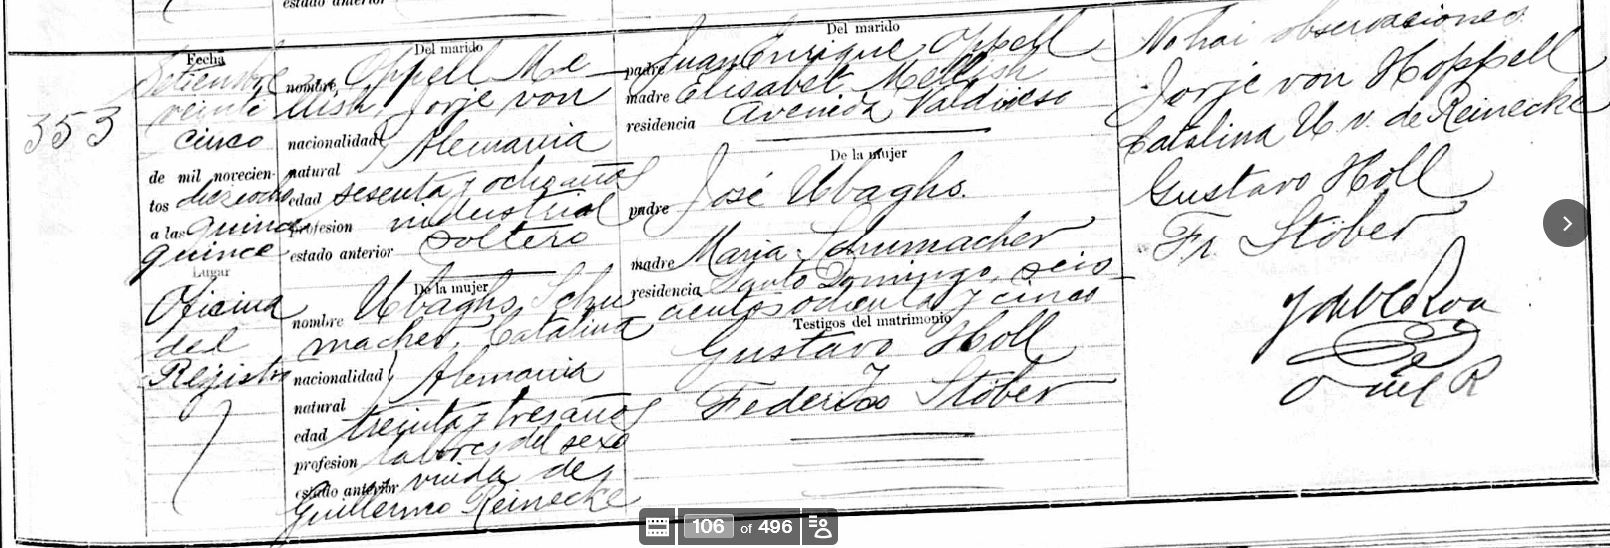 estado anterior
353
Fecha
Setiembre
veinte
cinco
de mil novecien-
tos dieziocho
a las quince
quince
Lugar
Oficina
del
Registro
Del marido
nombre, Oppell Me
llish, Jorje von
nacionalidad Alemania
natural
edad sesenta y ocho años
profesion industrial
estado anterior soltero
De la mujer
nombre Ubaghs Schu
macher, Catalina
nacionalidad Alemania
natural
edad treinta y tres años
profesion labores del sexo
estado anterior viuda de
Guillermo Reinecke
Del marido
padre Juan Enrique Oppell
madre Elisabet Mellish
residencia Avenida Valdivieso
De la mujer
padre José Ubaghs.
madre Maria Schumacher
residencia Santo Domingo, seis
cientos ochenta y cinco
Testigos del matrimonio
Gustavo Holl
y
Federico Stöber
No hai observaciones
Jorje von Hoppell
Catalina U. v. de Reinecke
Gustavo Holl
Fr. Stöber
106 of 496